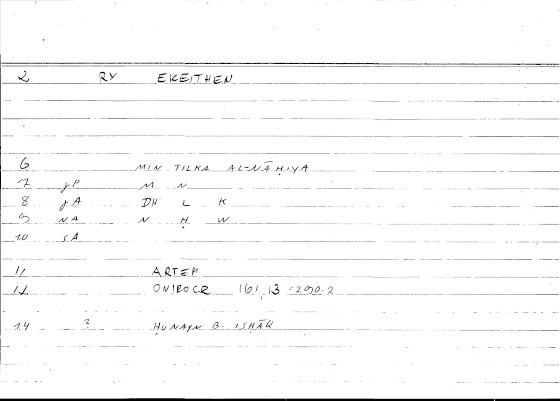 2 RY EKEITHEN
6 MIN TILKA AL-NĀḤIYA
7 gP M N
8 gA DH L K
9 NA N Ḥ W
10 sA
11 ARTEM
12 ONIROCR 161,13 -290.2
14 ? ḤUNAYN B. ISḤĀQ